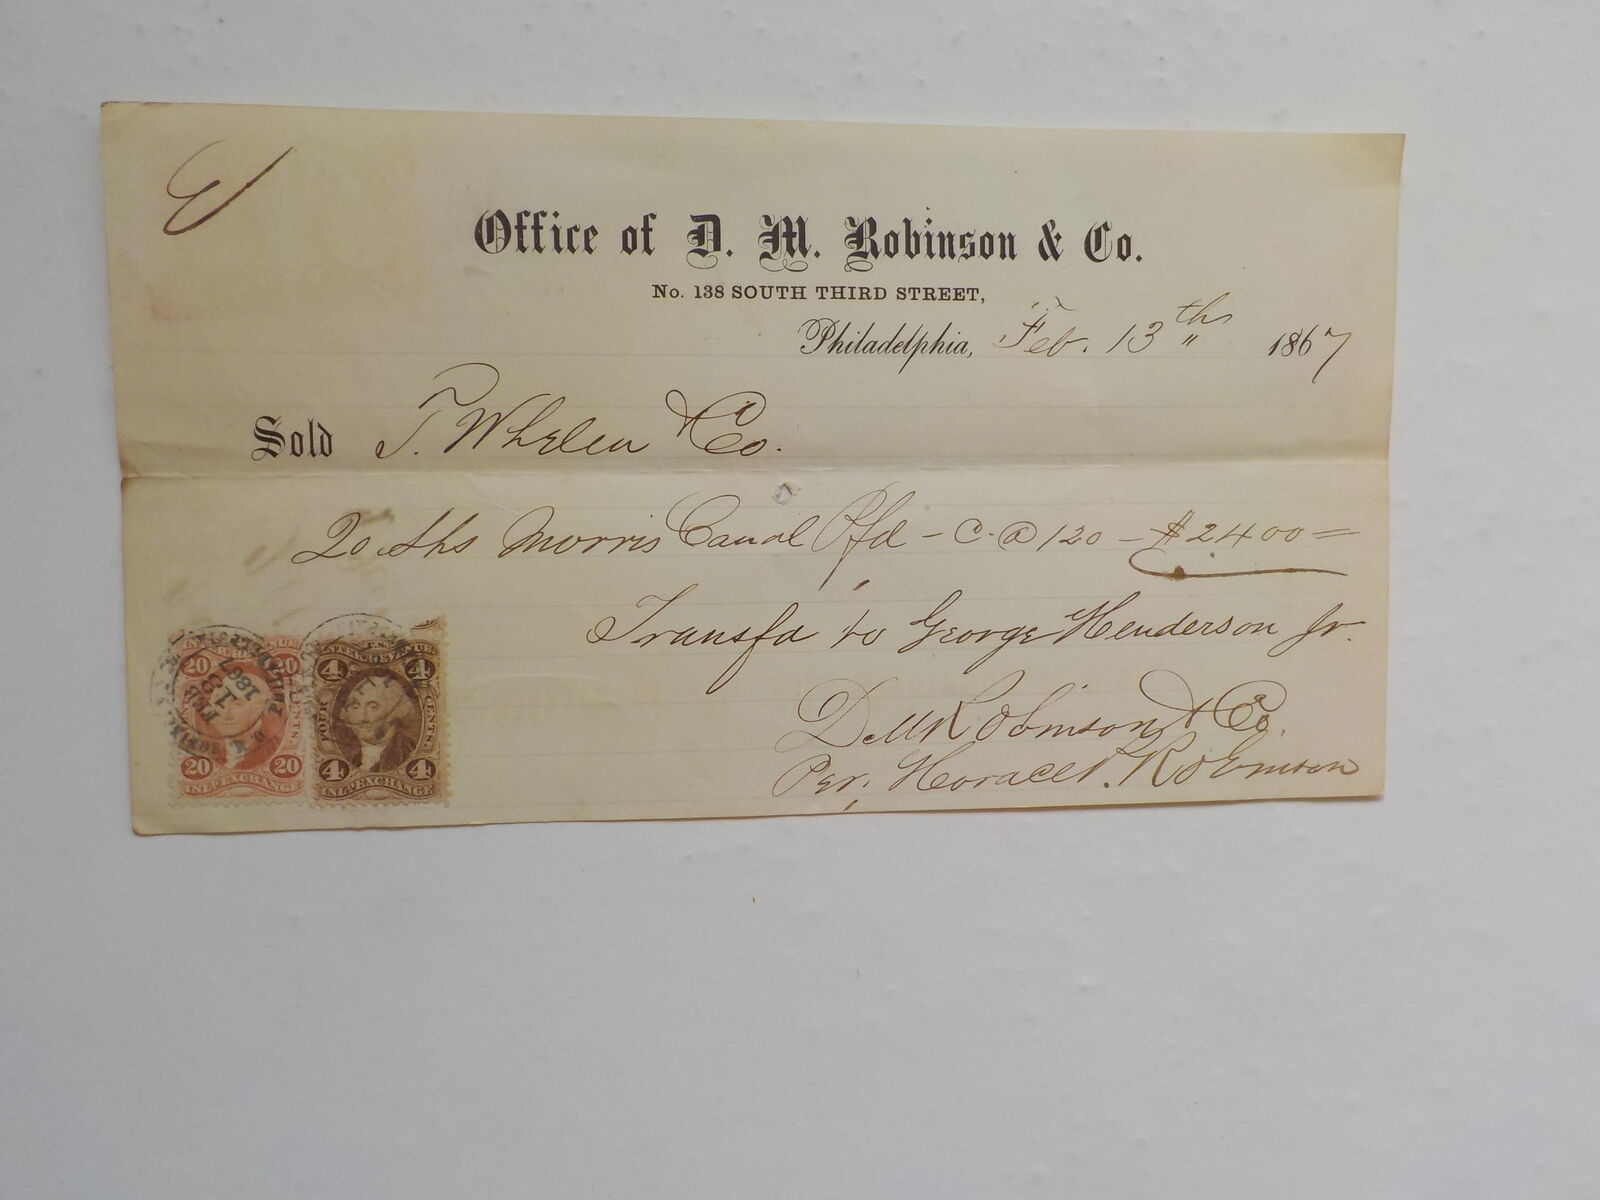 Office of D. M. Robinson & Co.
No. 138 SOUTH THIRD STREET,
Philadelphia, Feb. 13th 1867
Sold T. Whelen & Co.
20 Shs Morris Canal Pfd - C. @ 120 - $2400=
Transfd to George Henderson Jr.
D M Robinson & Co.
Per. Horace P. Robinson
20 20
FEB 13 1867
20 20
INL. EXCHANGE
4 4
FOUR CENTS.
4 4
INL. EXCHANGE